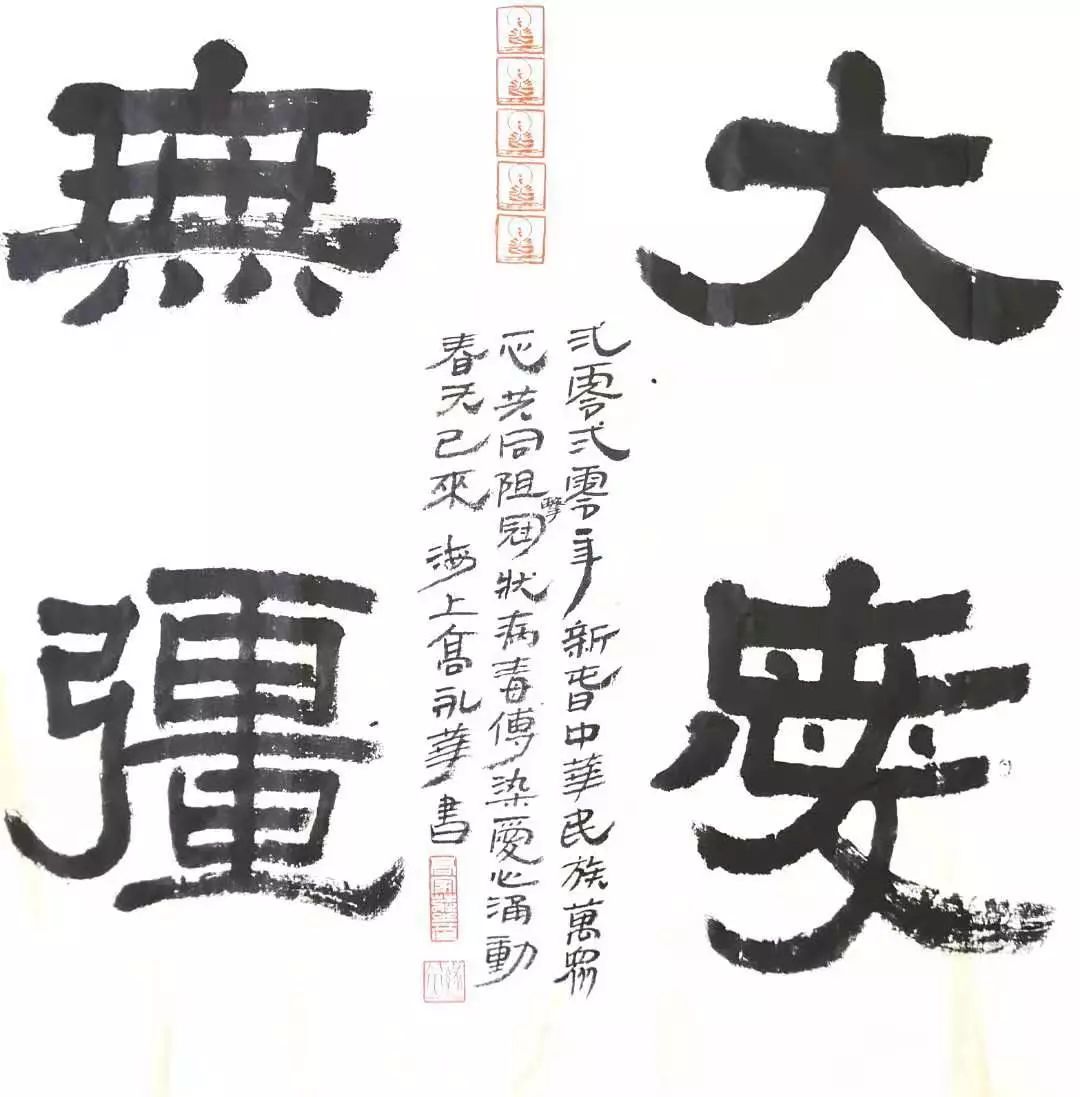 大愛
無彊
弍零弍零年新旾中華民族萬眾
一心共同阻擊冠狀病毒傳染愛心涌動
春天已來 海上髙永華書